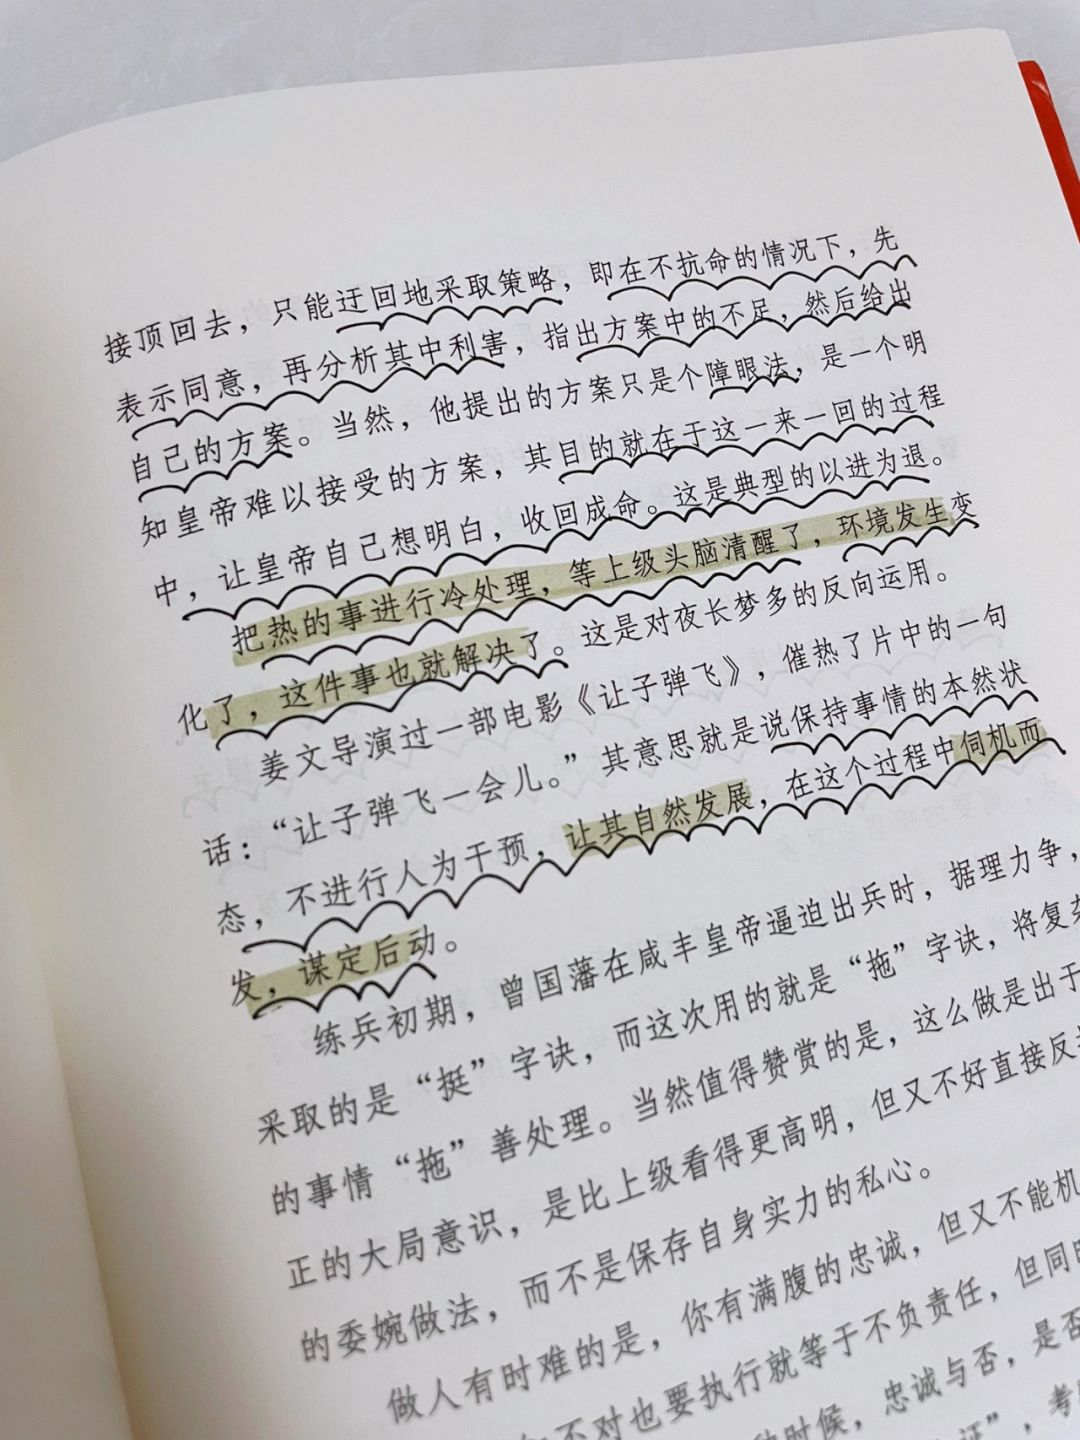 接顶回去，只能迂回地采取策略，即在不抗命的情况下，先
表示同意，再分析其中利害，指出方案中的不足，然后给出
自己的方案。当然，他提出的方案只是个障眼法，是一个明
知皇帝难以接受的方案，其目的就在于这一来一回的过程
中，让皇帝自己想明白，收回成命。这是典型的以进为退。
把热的事进行冷处理，等上级头脑清醒了，环境发生变
化了，这件事也就解决了。这是对夜长梦多的反向运用。
姜文导演过一部电影《让子弹飞》，催热了片中的一句
话：“让子弹飞一会儿。”其意思就是说保持事情的本然状
态，不进行人为干预，让其自然发展，在这个过程中伺机而
发，谋定后动。
练兵初期，曾国藩在咸丰皇帝逼迫出兵时，据理力争，
采取的是“挺”字诀，而这次用的就是“拖”字诀，将复杂
的事情“拖”善处理。当然值得赞赏的是，这么做是出于
正的大局意识，是比上级看得更高明，但又不好直接反
的委婉做法，而不是保存自身实力的私心。
做人有时难的是，你有满腹的忠诚，但又不能机
不对也要执行就等于不负责任，但同
时候，忠诚与否，是否
证”，考